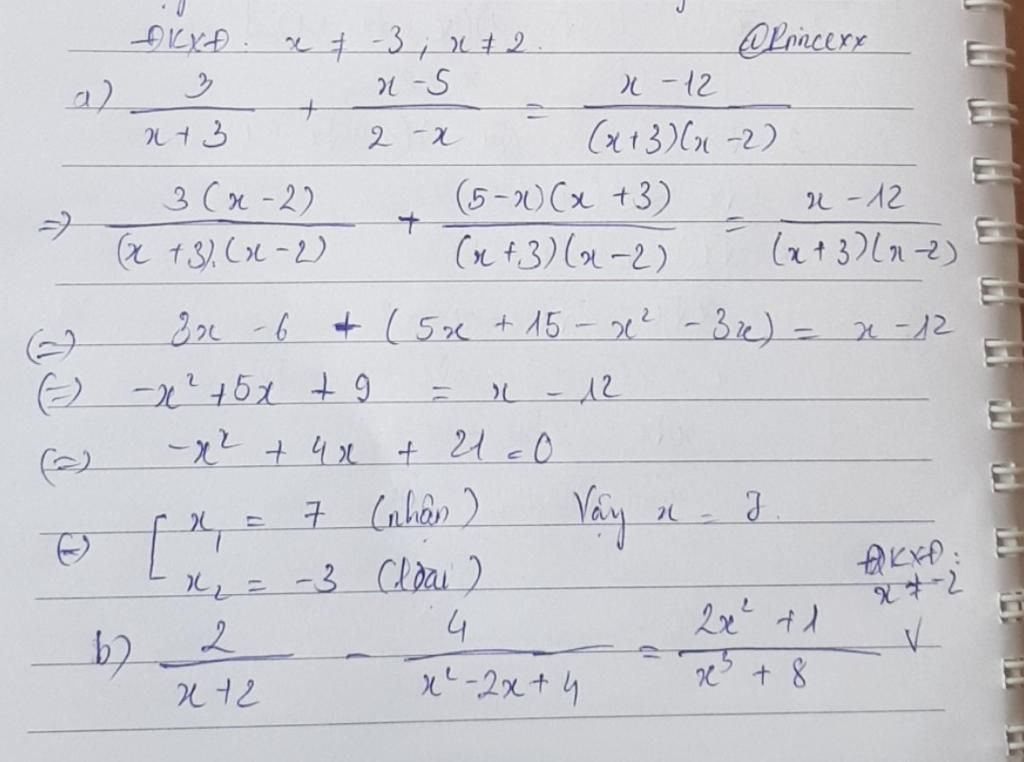 ĐKXĐ: x ≠ -3; x ≠ 2. @Princexx
a) 3/(x+3) + (x-5)/(2-x) = (x-12)/((x+3)(x-2))
=> 3(x-2)/((x+3).(x-2)) + (5-x)(x+3)/((x+3)(x-2)) = (x-12)/((x+3)(x-2))
(=) 3x - 6 + (5x + 15 - x² - 3x) = x - 12
(=) -x² + 5x + 9 = x - 12
(=) -x² + 4x + 21 = 0
(=) [ x₁ = 7 (nhận) Vậy x = 7.
x₂ = -3 (loại)
ĐKXĐ:
x ≠ -2
b) 2/(x+2) - 4/(x²-2x+4) = (2x²+1)/(x³+8) √